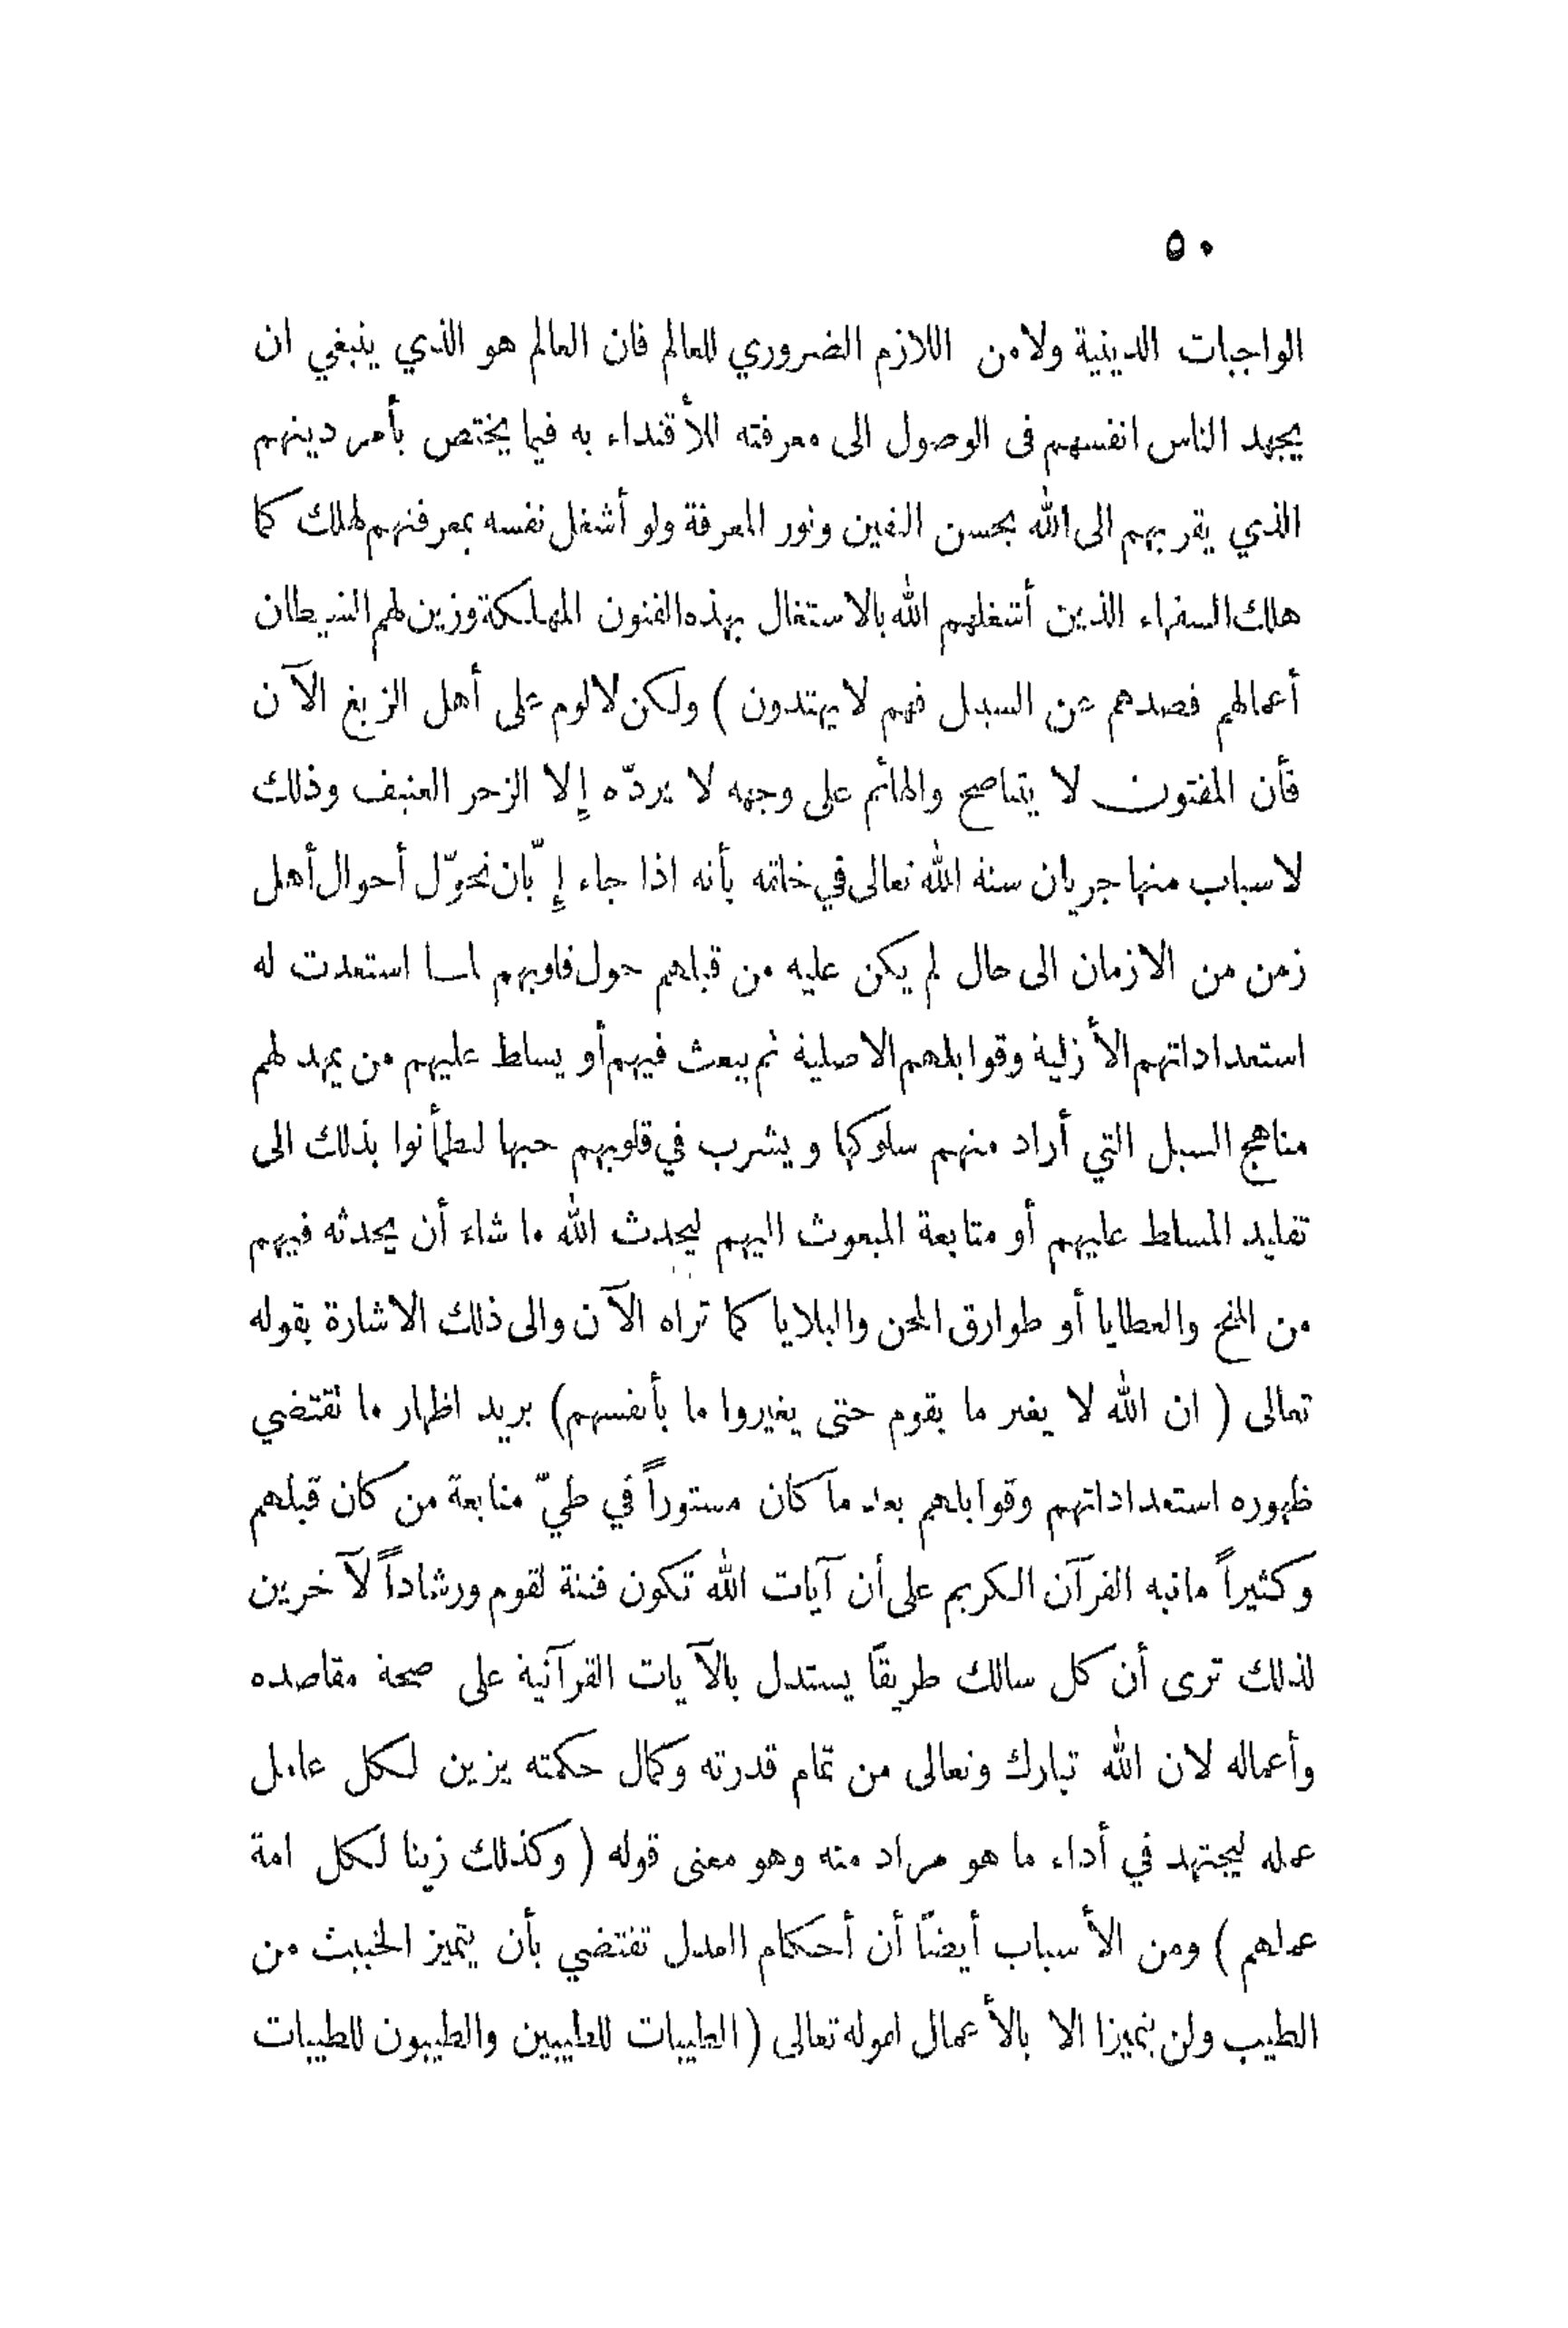 ٥٠
الواجبات الدينية ولا من اللازم الضروري للعالم فان العالم هو الذي ينبغي ان
يجهد الناس انفسهم فى الوصول الى معرفته للأقتداء به فيما يختص بأمر دينهم
الذي يقربهم الى الله بحسن اليقين ونور المعرفة ولو أشغل نفسه بمعرفتهم لهلك كما
هلك السفهاء الذين أشغلهم الله بالاستغال بهذه الفنون المهلكة وزين لهم الشيطان
أعمالهم فصدهم عن السبيل فهم لا يهتدون ) ولكن لا لوم على أهل الزيغ الآن
فأن المفتون لا يتناصح والهائم على وجهه لا يردّه إلا الزجر العنيف وذلك
لاسباب منها جريان سنة الله تعالى في خلقه بأنه اذا جاء إبّان تحوّل أحوال أهل
زمن من الازمان الى حال لم يكن عليه من قبلهم حول قلوبهم لما استعدت له
استعداداتهم الأزلية وقوابلهم الاصلية ثم يبعث فيهم أو يسلط عليهم من يمهد لهم
مناهج السبل التي أراد منهم سلوكها ويشرب في قلوبهم حبها ليطمأنوا بذلك الى
تقليد المسلط عليهم أو متابعة المبعوث اليهم ليحدث الله ما شاء أن يحدثه فيهم
من المنح والعطايا أو طوارق المحن والبلايا كما تراه الآن والى ذلك الاشارة بقوله
تعالى ( ان الله لا يغير ما بقوم حتى يغيروا ما بأنفسهم) يريد اظهار ما تقتضي
ظهوره استعداداتهم وقوابلهم بعد ما كان مستوراً في طيّ متابعة من كان قبلهم
وكثيراً ما نبه القرآن الكريم على أن آيات الله تكون فتنة لقوم ورشاداً لآخرين
لذلك ترى أن كل سالك طريقاً يستدل بالآيات القرآنية على صحة مقاصده
وأعماله لان الله تبارك وتعالى من تمام قدرته وكمال حكمته يزين لكل عامل
عمله ليجتهد في أداء ما هو مراد منه وهو معنى قوله ( وكذلك زينا لكل امة
عملهم ) ومن الأسباب أيضاً أن أحكام العدل تقتضي بأن يتميز الخبيث من
الطيب ولن يتميزا الا بالأعمال لقوله تعالى ( الطيبات للطيبين والطيبون للطيبات